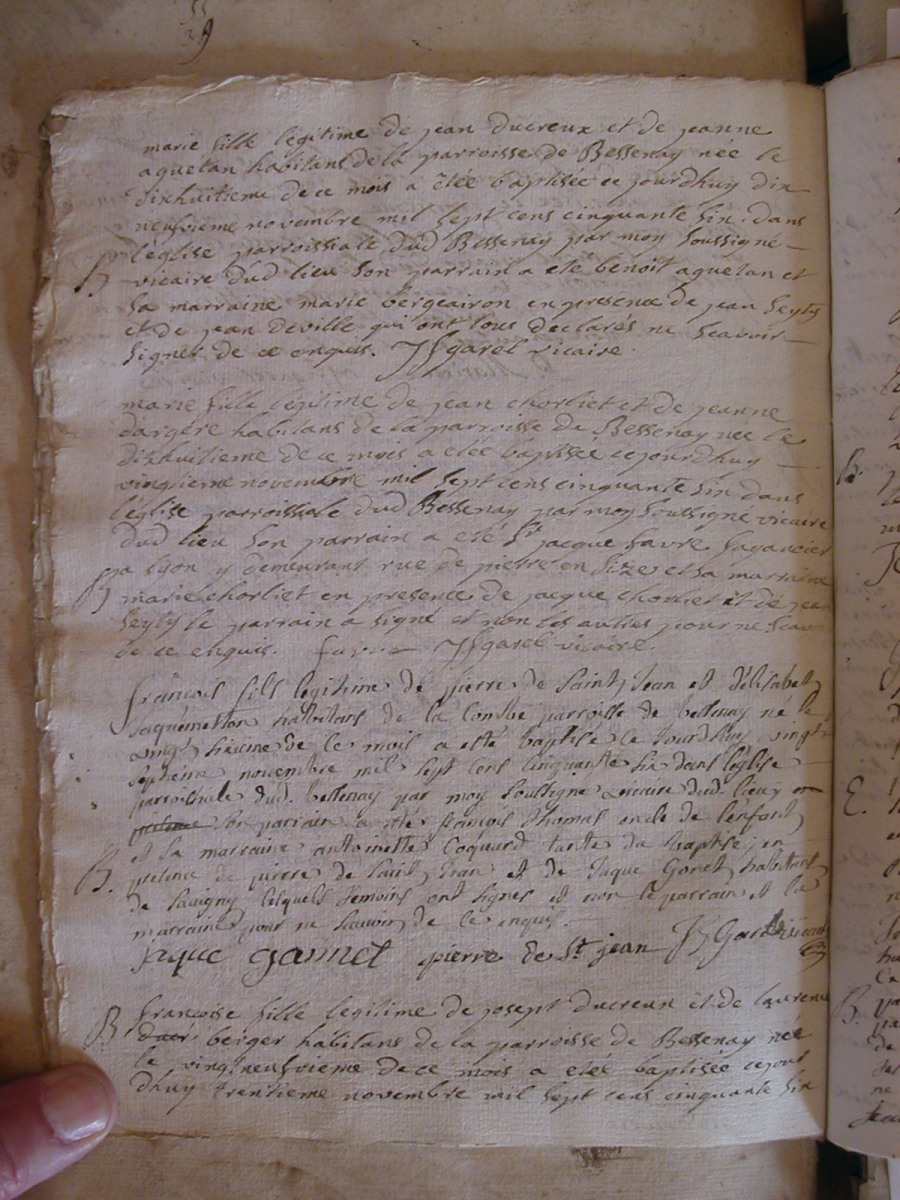 marie fille legitime de jean ducreux et de jeanne
aquetan habitans de la parroisse de Bessenay née le
dixhuitieme de ce mois a etée baptisée ce jourdhuy dix
neufvieme novembre mil sept cens cinquante six. dans
l'église parroissiale dud Bessenay par moy soussigné
B vicaire dud lieu son parrain a eté benoit aquetan et
sa marraine marie bergeairon en presence de jean seyty
et de jean deville qui ont tous declarés ne scavoir
signer de ce enquis. garel vicaire.
marie fille legitime de jean chorliet et de jeanne
dargere habitans de la parroisse de Bessenay née le
dixhuitieme de ce mois a etée baptisée cejourdhuy
vingtieme novembre mil sept cens cinquante six dans
l'église parroissiale dud Bessenay par moy soussigné vicaire
dud lieu son parrain a eté Sr jacque favre
B a lyon y demeurant rue de pierre en size et sa marraine
marie chorliet en presence de jacque chorliet et de jean
seyty le parrain a signé et non les autres pour ne scavoir
de ce enquis. favre garel vicaire.
francois fils legitime de pierre de Saint Jean et d'élisabet
habitans de la Combe parroisse de bessenay né le
vingt sixieme de ce mois a esté baptisé ce Jourdhuy vingt
septieme novembre mil sept cens cinquante six dans léglise
parroissiale dud. bessenay par moy soussigné vicaire dud. lieu
son parrain a etté francois Thomas oncle de l'enfant
et sa marraine antoinette Coquard tante du baptisé, en
B. presence de pierre de saint Jean et de Jaque Gonet habitant
de Savigny lesquels temoins ont signes et non le parrain et la
marraine pour ne scavoir de ce enquis.
jaque gonnet pierre de St jean vicaire
B francoise fille legitime de josept ducreux et de laurence
berger habitans de la parroisse de Bessenay née
le vingtneufvieme de ce mois a etée baptisée cejour
dhuy trentieme novembre mil sept cens cinquante six